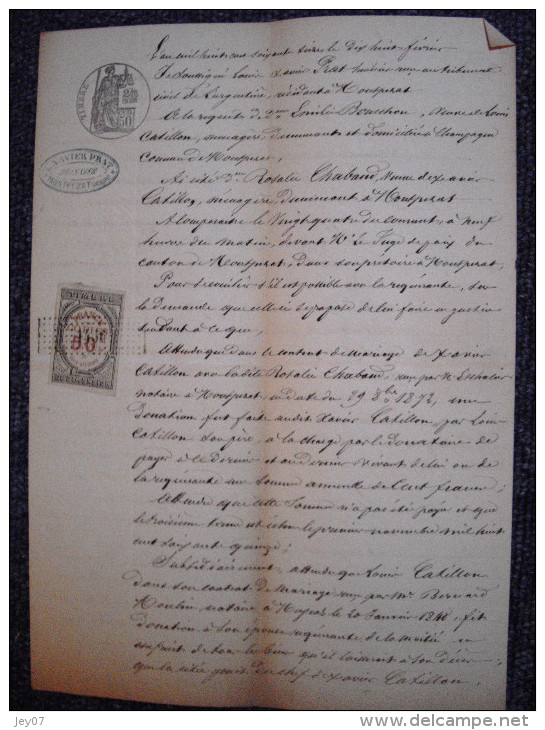 L'an mil huit cent soixante seize le dix huit février
Je soussigné Louis Xavier Prat huissier reçu au tribunal
civil de Largentière, résidant à Montpezat
A la requête de Dme Emilie Bouchon, veuve de Louis
Catillon, ménagère, demeurant et domiciliée à Champagne
Commune de Montpezat,
Ai cité Dme Rosalie Chabaud, veuve de Xavier
Catillon, ménagère, demeurant à Montpezat
A comparaitre le Vingt quatre du courant, à neuf
heures du matin, devant Mr le Juge de paix du
canton de Montpezat, dans son prétoire à Montpezat,
Pour se concilier s'il est possible avec la requérante, sur
la demande que celle-ci se propose de lui faire en justice
tendant à ce que,
Attendu que dans le contrat de Mariage de Xavier
Catillon avec la dite Rosalie Chabaud, reçu par Me
notaire à Montpezat, en date du 29 8bre 1872, une
donation fut faite audit Xavier Catillon, par Louis
Catillon son père, à la charge par le donataire de
payer à ce dernier et au dernier vivant de lui ou de
la requérante une somme annuelle de Cent francs;
Attendu que cette somme n'a pas été payée et que
le troisième terme est échu le premier novembre mil huit
cent soixante quinze;
Subsidiairement, attendu que Louis Catillon
dans son contrat de Mariage reçu par Me Bernard
Moulin notaire à le 20 Janvier 1840, fit
donation à son épouse requérante de la moitié en
usufruit de tous les biens qu'il laisserait à son décès;
que la citée jouit du chef de Xavier Catillon,
TIMBRE
50
XAVIER PRAT
HUISSIER
MONTPEZAT
TIMBRE
FRANCE
50
jey07
www.delcampe.net